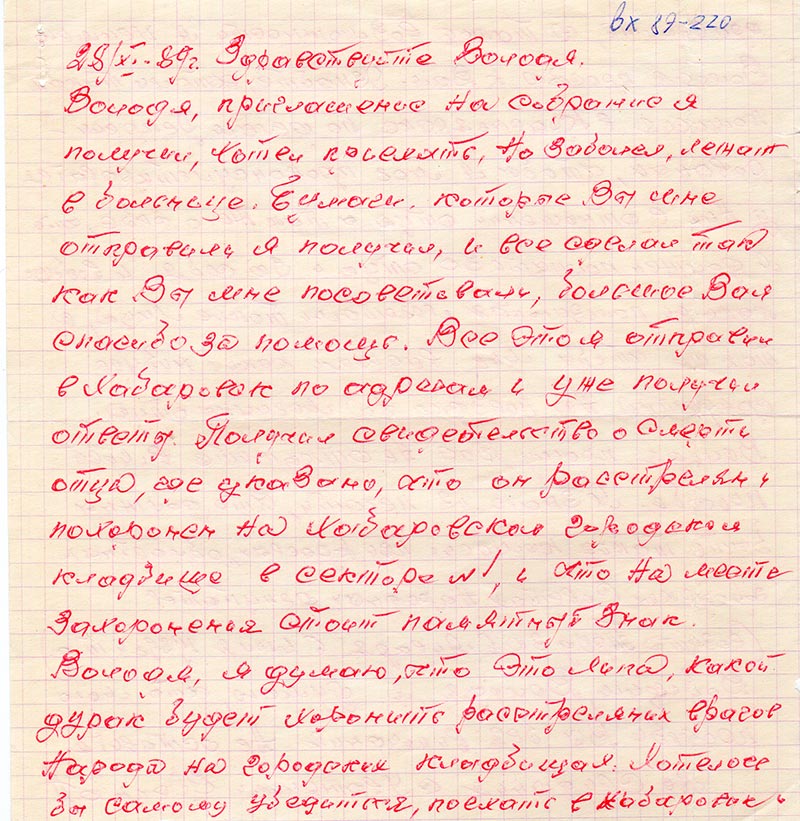 вх 89-220
28/XI-89г. Здравствуйте Володя.
Володя, приглашение на собрание я
получил, хотел приехать, но заболел, лежал
в больнице. Бумаги, которые Вы мне
отправили я получил, и все сделал так
как Вы мне посоветовали, большое Вам
спасибо за помощь. Все это я отправил
в Хабаровск по адресам и уже получил
ответы. Получил свидетельство о смерти
отца, где указано, что он расстрелян и
похоронен на Хабаровском городском
кладбище в секторе №1, и что на месте
захоронения стоит памятный знак.
Володя, я думаю, что это липа, какой
дурак будет хоронить расстреляних врагов
народа на городских кладбищах. Хотелось
бы самому убедится, поехать в Хабаровск и